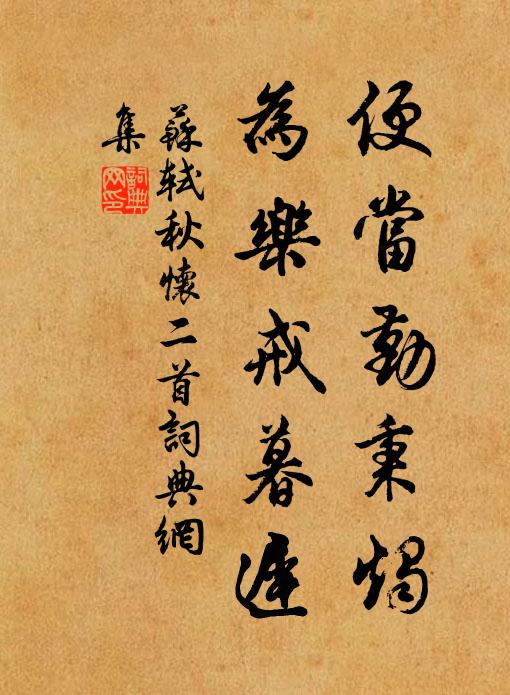 便當勤秉燭
為樂戒暮遲
蘇軾秋懷二首詞典網
集
詞典
网印